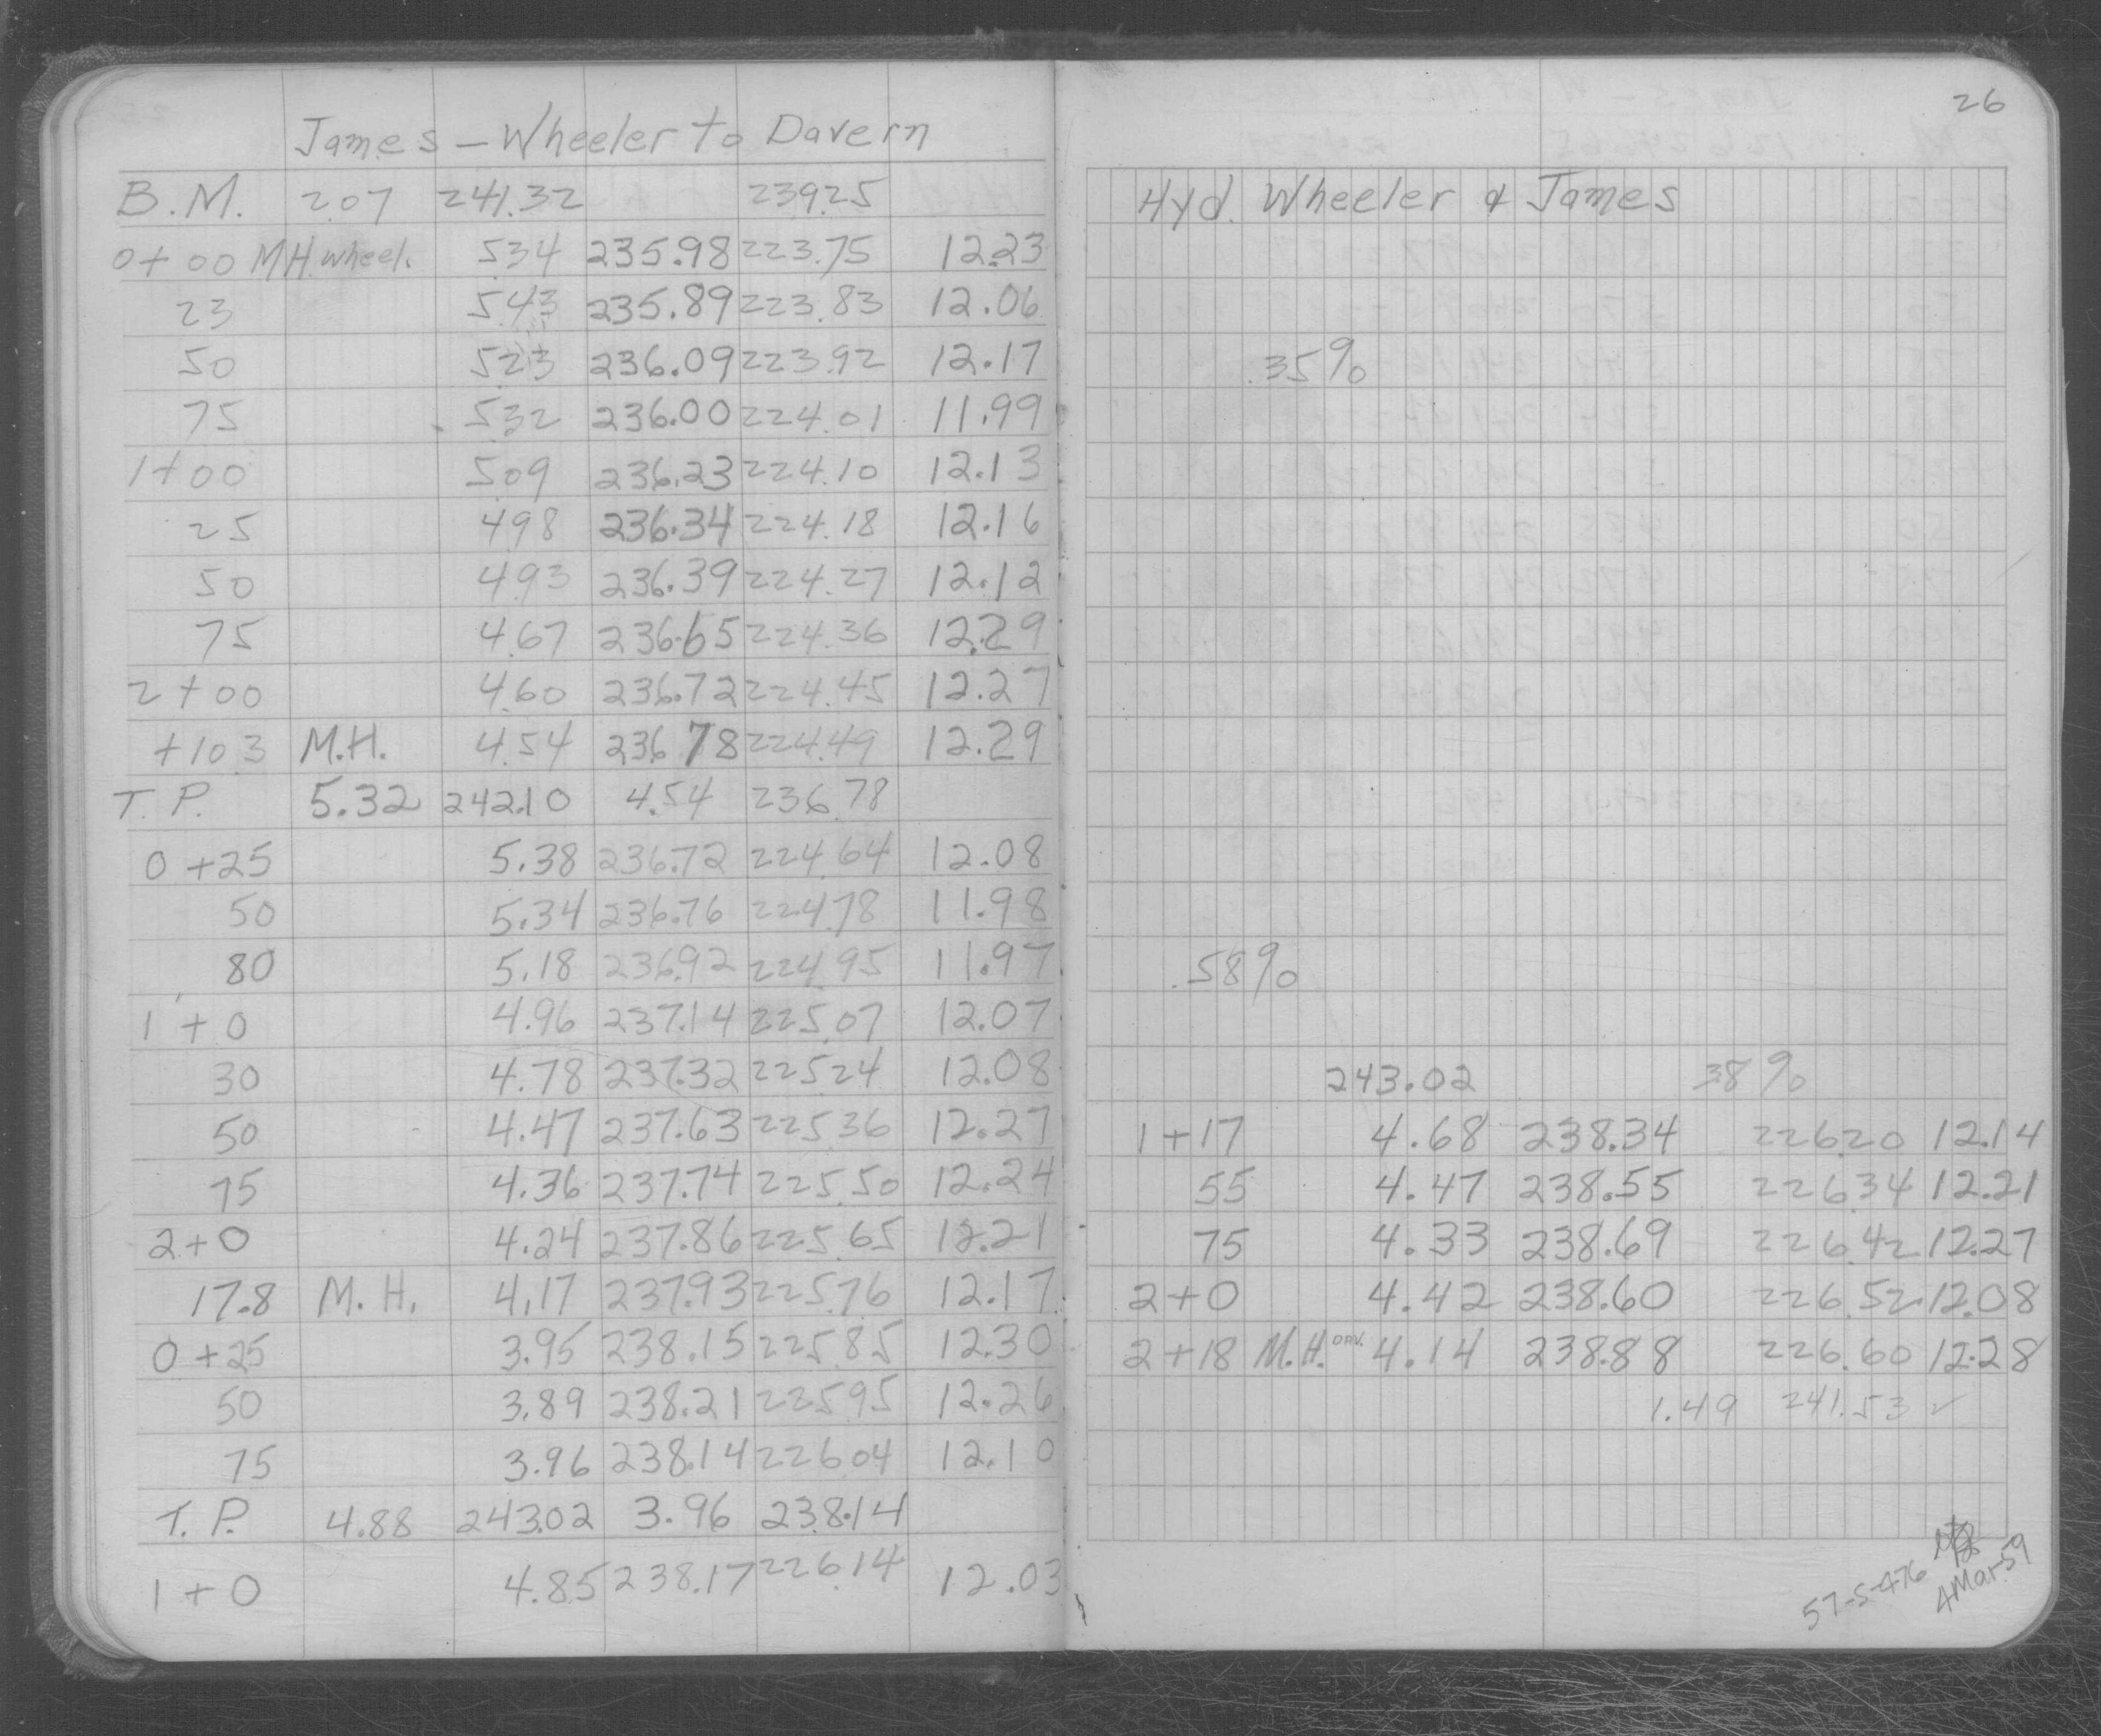 James - Wheeler to Davern
B.M. 2.07 241.32 239.25
0+00 M.H. Wheel. 5.34 235.98 223.75 12.23
23 5.43 235.89 223.83 12.06
50 5.23 236.09 223.92 12.17
75 5.32 236.00 224.01 11.99
1+00 5.09 236.23 224.10 12.13
25 4.98 236.34 224.18 12.16
50 4.93 236.39 224.27 12.12
75 4.67 236.65 224.36 12.29
2+00 4.60 236.72 224.45 12.27
+10.3 M.H. 4.54 236.78 224.49 12.29
T.P. 5.32 242.10 4.54 236.78
0+25 5.38 236.72 224.64 12.08
50 5.34 236.76 224.78 11.98
80 5.18 236.92 224.95 11.97
1+0 4.96 237.14 225.07 12.07
30 4.78 237.32 225.24 12.08
50 4.47 237.63 225.36 12.27
75 4.36 237.74 225.50 12.24
2+0 4.24 237.86 225.65 12.21
17.8 M.H. 4.17 237.93 225.76 12.17
0+25 3.95 238.15 225.85 12.30
50 3.89 238.21 225.95 12.26
75 3.96 238.14 226.04 12.10
T.P. 4.88 243.02 3.96 238.14
1+0 4.85 238.17 226.14 12.03
26
Hyd. Wheeler & James
.35%
.58%
243.02 .38%
1+17 4.68 238.34 226.20 12.14
55 4.47 238.55 226.34 12.21
75 4.33 238.69 226.42 12.27
2+0 4.42 238.60 226.52 12.08
2+18 M.H. DAV. 4.14 238.88 226.60 12.28
1.49 241.53 ✓
57-S-476
4 Mar 59